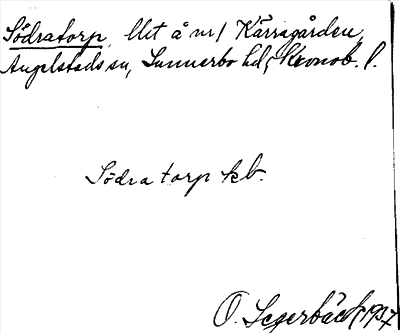 Södratorp, Utt å nr 1 Kärragården,
Angelstads sn, Sunnerbo hd, Kronob. l.
Södratorp kb.
O. Segerbäck 1937